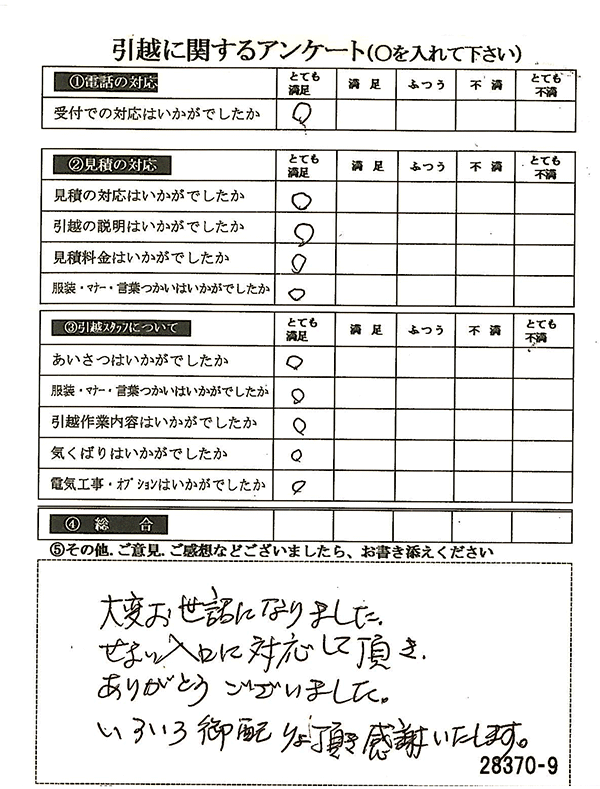 引越に関するアンケート(○を入れて下さい)
①電話の対応 とても満足 満足 ふつう 不満 とても不満
受付での対応はいかがでしたか ○
②見積の対応 とても満足 満足 ふつう 不満 とても不満
見積の対応はいかがでしたか ○
引越の説明はいかがでしたか ○
見積料金はいかがでしたか ○
服装・マナー・言葉つかいはいかがでしたか ○
③引越スタッフについて とても満足 満足 ふつう 不満 とても不満
あいさつはいかがでしたか ○
服装・マナー・言葉つかいはいかがでしたか ○
引越作業内容はいかがでしたか ○
気くばりはいかがでしたか ○
電気工事・オプションはいかがでしたか ○
④ 総合
⑤その他.ご意見.ご感想などございましたら、お書き添えください
大変お世話になりました.
せまい入口に対応して頂き.
ありがとうございました。
いろいろ御配りょ頂き感謝いたします。
28370-9